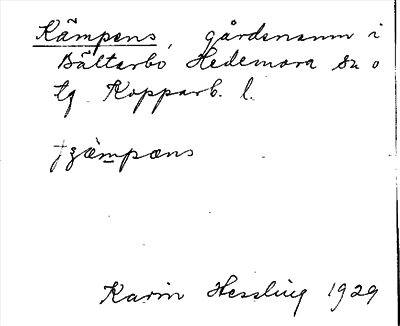 Kämpens, gårdsnamn i
Bältarbo Hedemora sn o
tg Kopparb. l.
Karin Hessling 1929